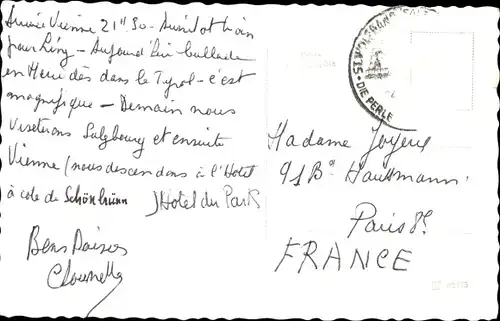 Arrivée Vienne 21h30 - Aussitôt train
pour Linz - Aujourd'hui ballade
dans le Tyrol - c'est
magnifique - Demain nous
visiterons Salzbourg et ensuite
Vienne (nous descendons à l'Hotel
à coté de Schönbrünn) Hotel du Park
Bons Baisers
ST. WOLFGANG
DIE PERLE
Madame Joyeux
91 Bd Haussmann
Paris 8e
FRANCE